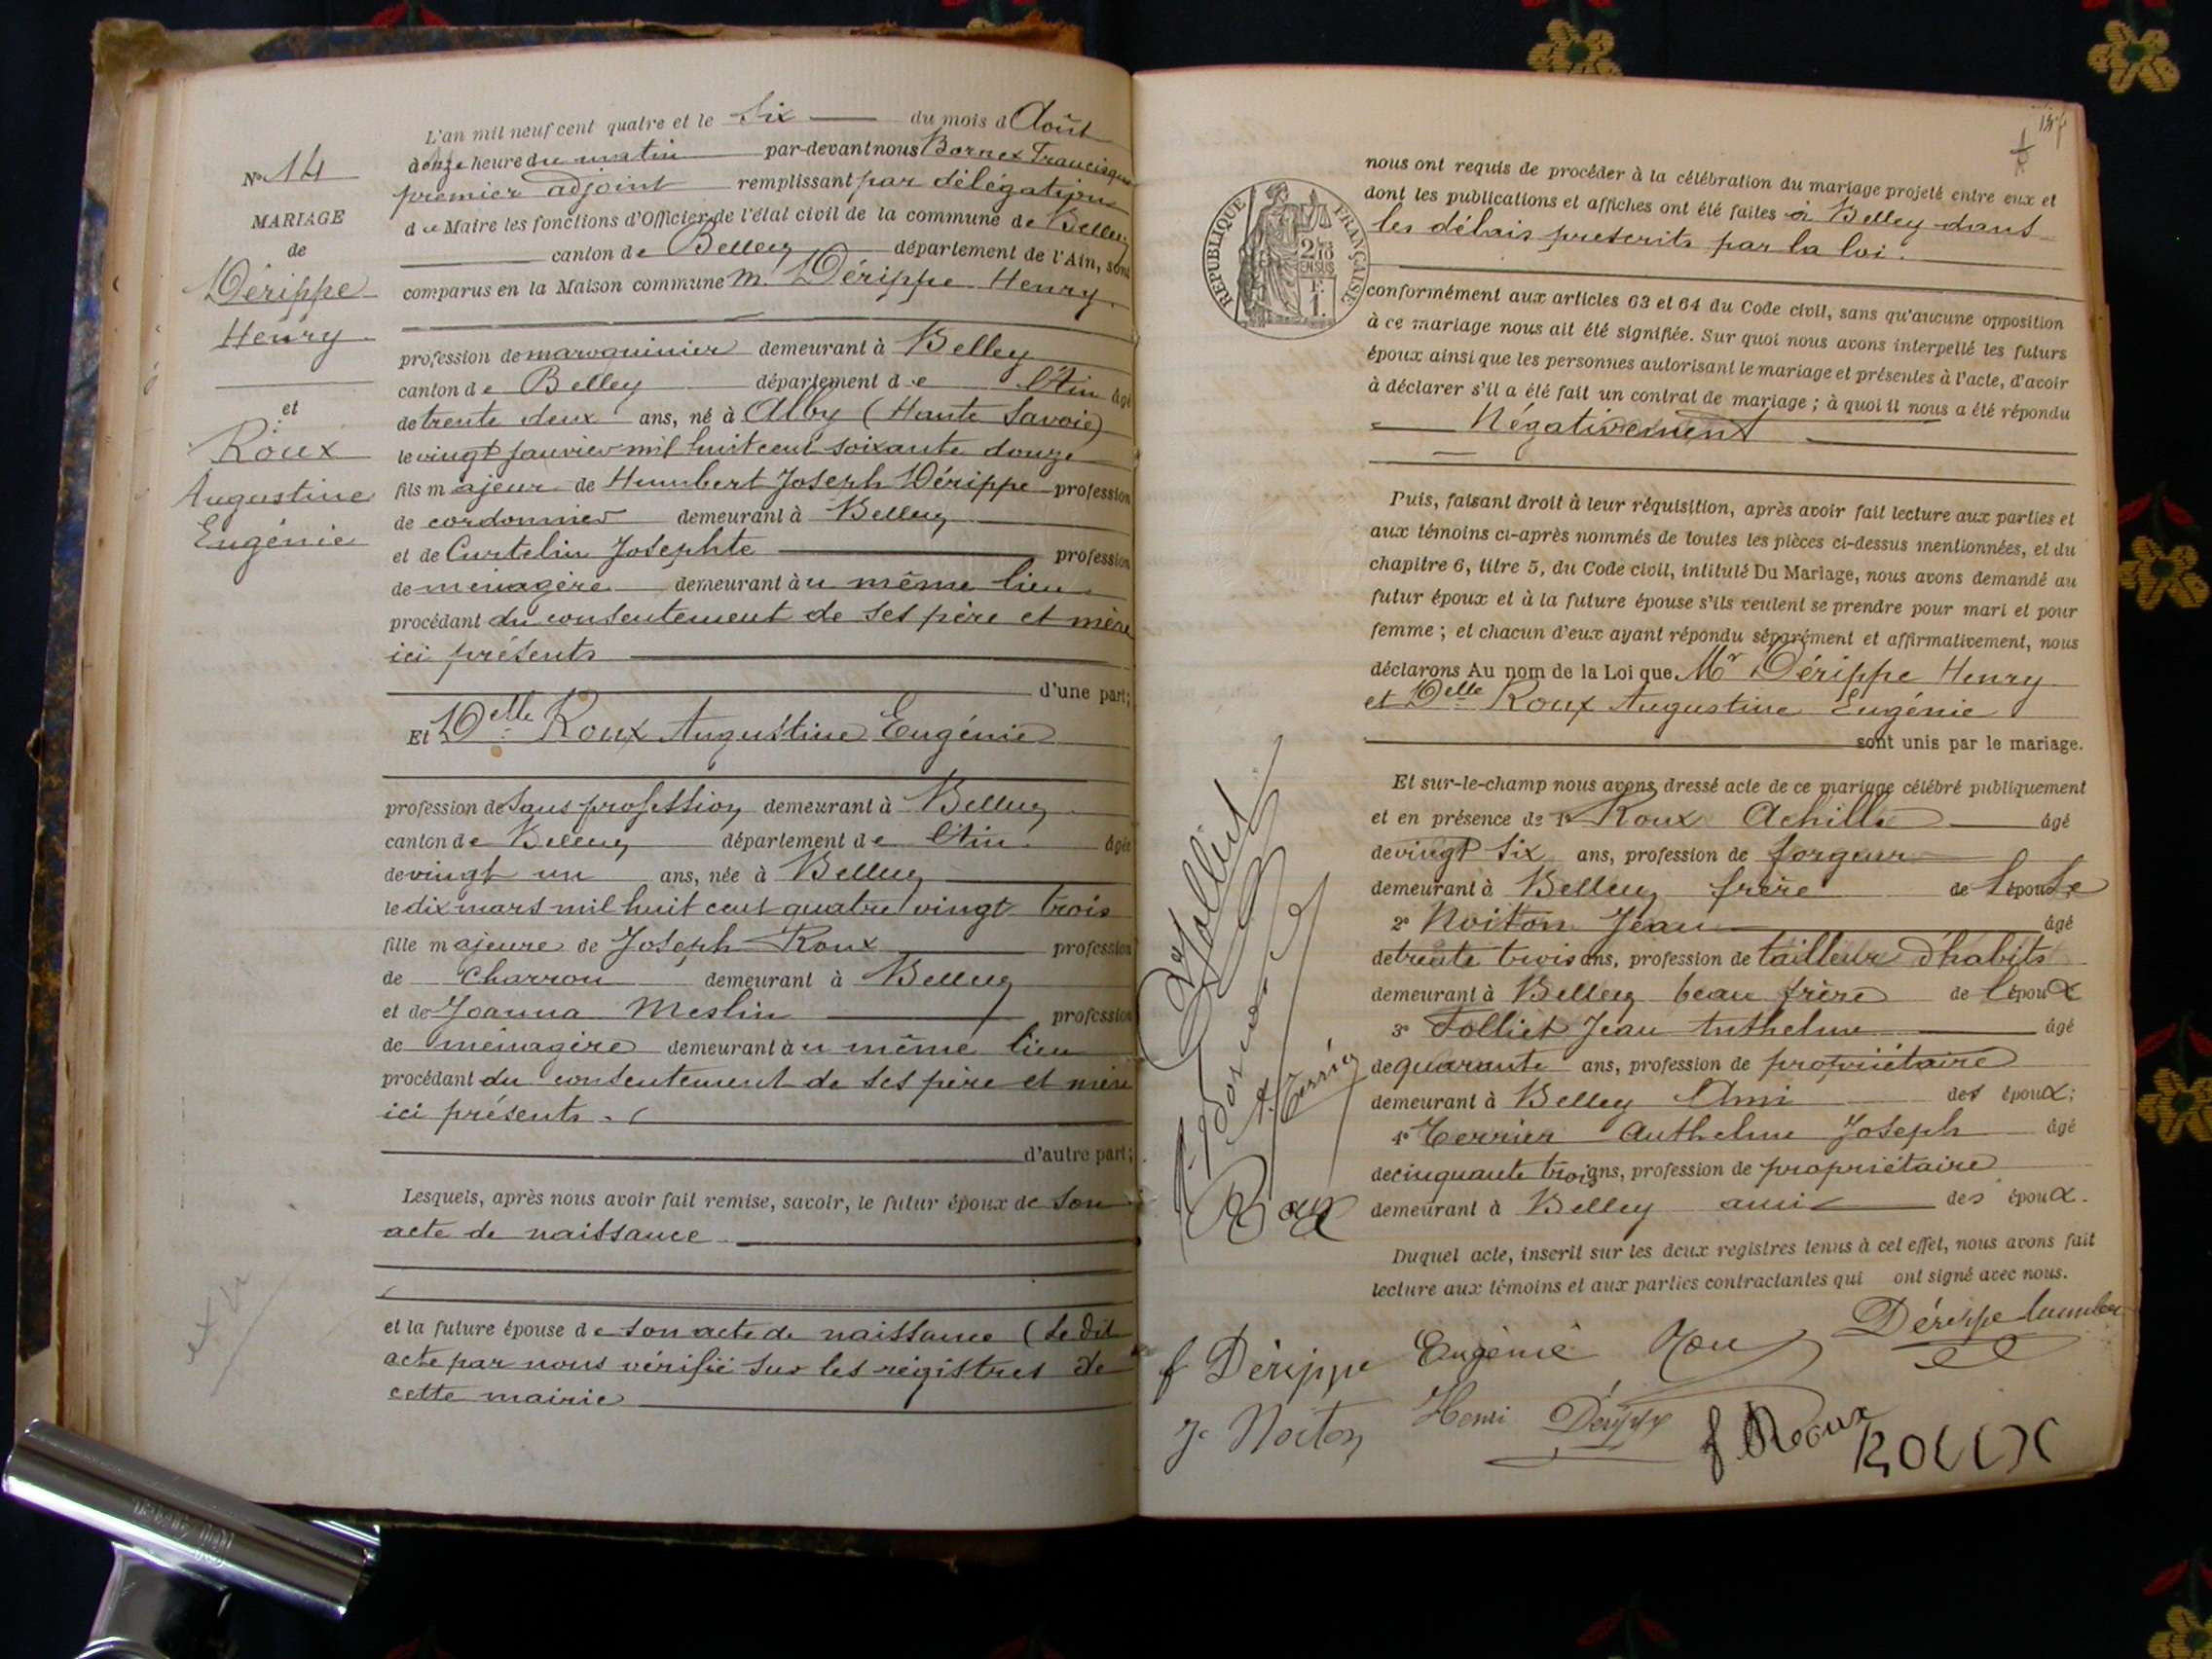 L'an mil neuf cent quatre et le Six du mois d'Août
à onze heure du matin par-devant nous Bornex Francisque
premier adjoint remplissant par délégation
du Maire les fonctions d'Officier de l'état civil de la commune de Belley
canton de Belley département de l'Ain, sont
comparus en la Maison commune M. Dérippe Henry
profession de maroquinier demeurant à Belley
canton de Belley département de l'Ain âgé
de trente deux ans, né à Alby (Haute Savoie)
le vingt janvier mil huit cent soixante douze
fils majeur de Humbert Joseph Dérippe profession
de cordonnier demeurant à Belley
et de Curtelin Josephte profession
de ménagère demeurant au même lieu
procédant du consentement de ses père et mère
ici présents
d'une part;
Et Delle Roux Augustine Eugénie
profession de sans profession demeurant à Belley
canton de Belley département de l'Ain âgée
de vingt un ans, née à Belley
le dix mars mil huit cent quatre vingt trois
fille majeure de Joseph Roux profession
de charron demeurant à Belley
et de Joanna Meslin profession
de ménagère demeurant au même lieu
procédant du consentement de ses père et mère
ici présents.
d'autre part;
Lesquels, après nous avoir fait remise, savoir, le futur époux de son
acte de naissance
et la future épouse de son acte de naissance (le dit
acte par nous vérifié sur les régistres de
cette mairie
No 14
MARIAGE
de
Dérippe
Henry
et
Roux
Augustine
Eugénie
nous ont requis de procéder à la célébration du mariage projeté entre eux et
dont les publications et affiches ont été faites à Belley dans
les délais prescrits par la loi.
RÉPUBLIQUE FRANÇAISE
2/10
EN SUS
1F
conformément aux articles 63 et 64 du Code civil, sans qu'aucune opposition
à ce mariage nous ait été signifiée. Sur quoi nous avons interpellé les futurs
époux ainsi que les personnes autorisant le mariage et présentes à l'acte, d'avoir
à déclarer s'il a été fait un contrat de mariage ; à quoi il nous a été répondu
Négativement
Puis, faisant droit à leur réquisition, après avoir fait lecture aux parties et
aux témoins ci-après nommés de toutes les pièces ci-dessus mentionnées, et du
chapitre 6, titre 5, du Code civil, intitulé Du Mariage, nous avons demandé au
futur époux et à la future épouse s'ils veulent se prendre pour mari et pour
femme ; et chacun d'eux ayant répondu séparément et affirmativement, nous
déclarons Au nom de la Loi que Mr Dérippe Henry
et Delle Roux Augustine Eugénie
sont unis par le mariage.
Et sur-le-champ nous avons dressé acte de ce mariage célébré publiquement
et en présence de 1° Roux Achille âgé
de vingt six ans, profession de forgeur
demeurant à Belley frère de l'épouse
2° Noiton Jean âgé
de trente trois ans, profession de tailleur d'habits
demeurant à Belley beau frère de l'époux
3° Folliet Jean Anthelme âgé
de quarante ans, profession de propriétaire
demeurant à Belley Ami des époux;
4° Terrier Anthelme Joseph âgé
de cinquante trois ans, profession de propriétaire
demeurant à Belley ami des époux.
Duquel acte, inscrit sur les deux registres tenus à cet effet, nous avons fait
lecture aux témoins et aux parties contractantes qui ont signé avec nous.
f Dérippe Eugénie Roux Dérippe humbert
J Noiton Henri Dérippe f Roux Roux
Roux